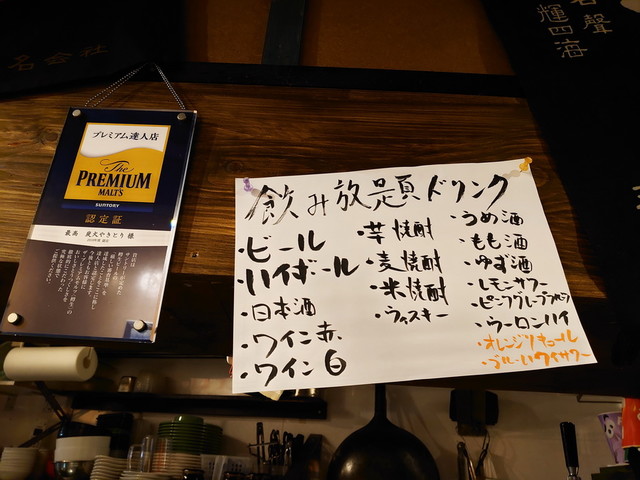 名聲
輝四海
名会社
プレミアム達人店
The
PREMIUM
MALT'S
SUNTORY
認定証
最高 炭火やきとり 様
飲み放題ドリンク
・ビール
・ハイボール
・日本酒
・ワイン赤
・ワイン白
・芋焼酎
・麦焼酎
・米焼酎
・ウィスキー
・うめ酒
・もも酒
・ゆず酒
・レモンサワー
・ピンクグレープフルーツ
・ウーロンハイ
・オレンジリキュール
・ブルーハワイサワー